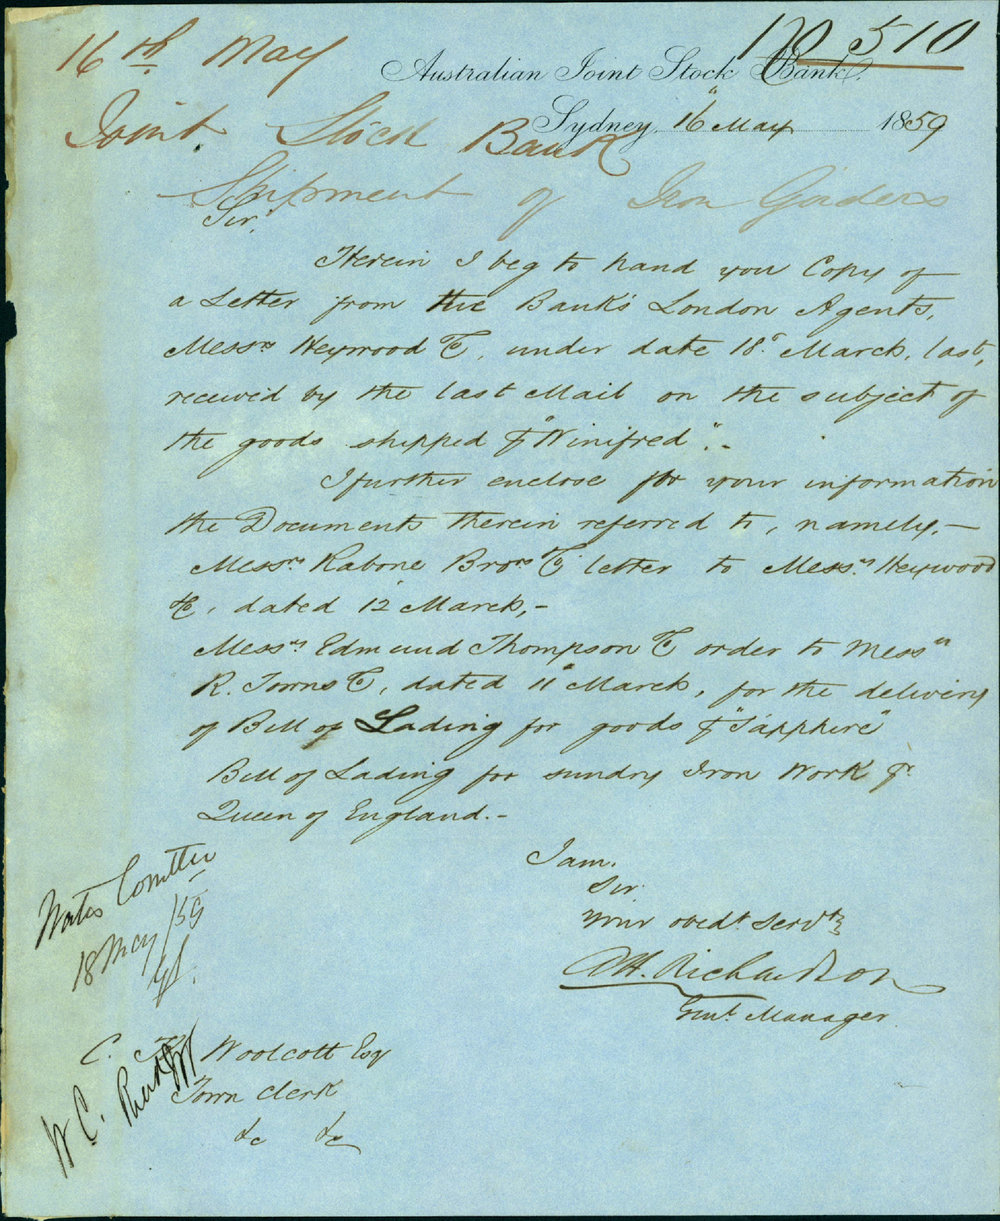 No 510
16th May
Australian Joint Stock Bank.
Sydney, 16" May 1859
Joint Stock Bank
Shipment of Iron Girders
Sir,
Herein I beg to hand you Copy of
a Letter from the Bank's London Agents,
Messrs Heywood & Co, under date 18th March, last,
received by the last Mail on the subject of
the goods shipped p "Winifred".-
I further enclose for your information
the Documents therein referred to, namely,-
Messrs Rabone Bros & Co letter to Messrs Heywood
& Co, dated 12 March,-
Messrs Edmund Thompson & Co order to Messrs
R. Towns & Co, dated 11" March, for the delivery
of Bill of Lading for goods p "Sapphire"
Bill of Lading for sundry Iron Work p
Queen of England.-
I am.
Sir
Your obedt Servt
A H. Richardson
Genl Manager
Water Comttee
18 May /59
C. H. Woolcott Esq
Town Clerk
&c &c
W C.